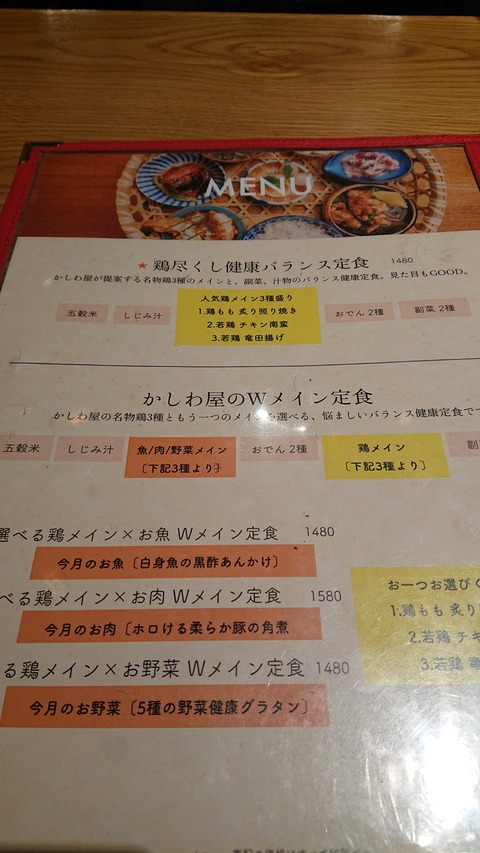 MENU
★ 鶏尽くし健康バランス定食 1480
かしわ屋が提案する名物鶏3種のメインと、副菜、汁物のバランス健康定食。見た目もGOOD。
五穀米 しじみ汁 人気鶏メイン3種盛り おでん2種 副菜2種
1.鶏もも 炙り照り焼き
2.若鶏 チキン南蛮
3.若鶏 竜田揚げ
かしわ屋のWメイン定食
かしわ屋の名物鶏3種ともう一つのメインを選べる、悩ましいバランス健康定食で
五穀米 しじみ汁 魚/肉/野菜メイン おでん2種 鶏メイン 副
〔下記3種より〕 〔下記3種より〕
選べる鶏メイン×お魚 Wメイン定食 1480
今月のお魚〔白身魚の黒酢あんかけ〕
べる鶏メイン×お肉 Wメイン定食 1580
今月のお肉〔ホロける柔らか豚の角煮
る鶏メイン×お野菜 Wメイン定食 1480
今月のお野菜〔5種の野菜健康グラタン〕
お一つお選びく
1.鶏もも 炙り
2.若鶏 チキ
3.若鶏 竜